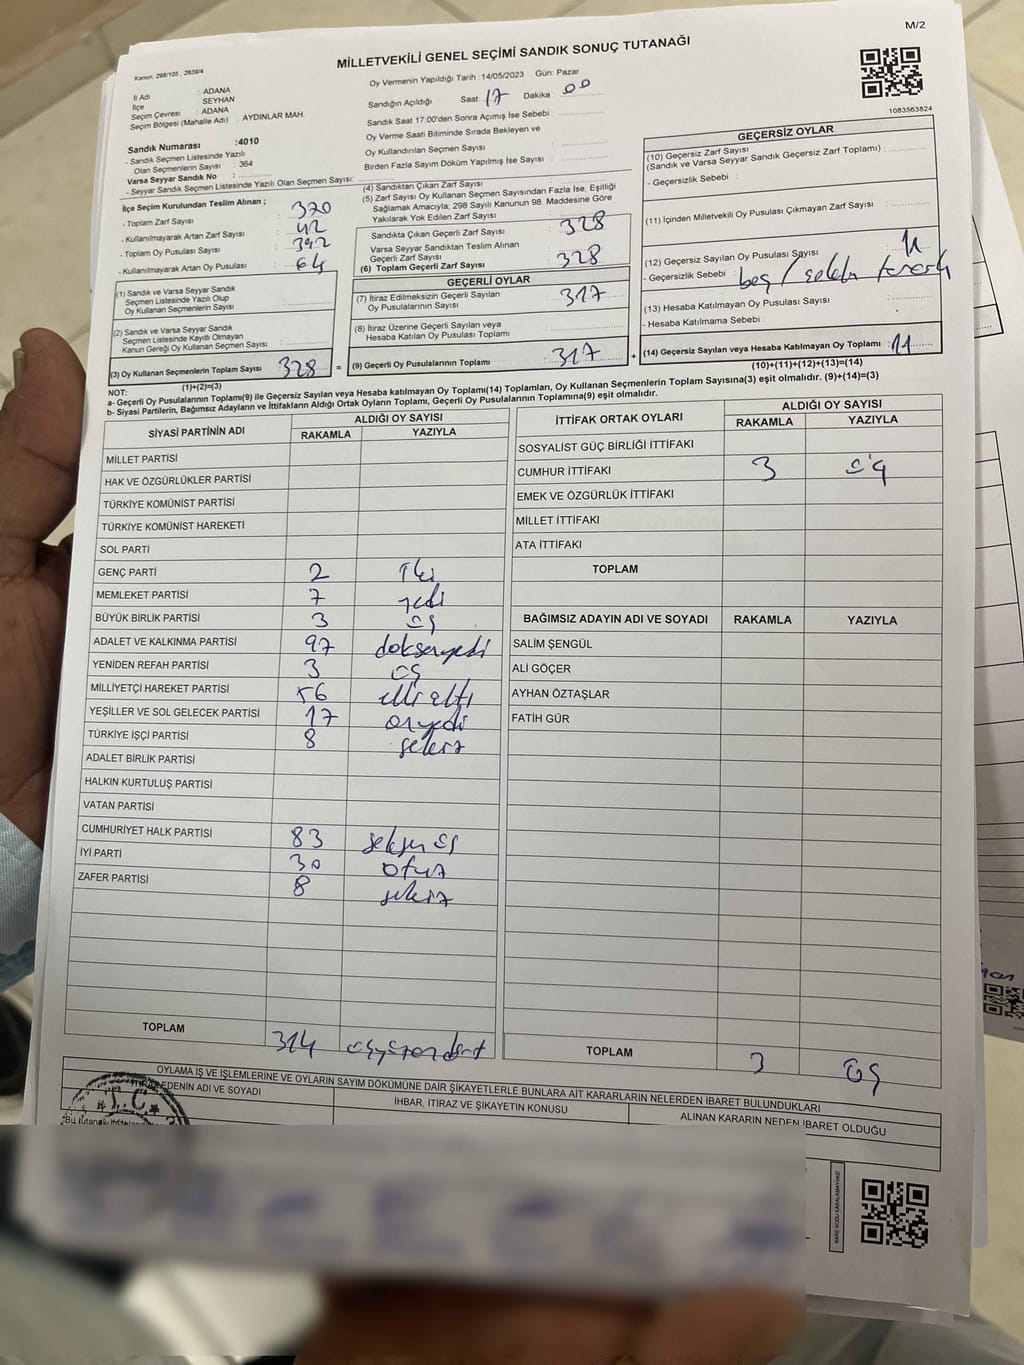 M/2
MİLLETVEKİLİ GENEL SEÇİMİ SANDIK SONUÇ TUTANAĞI
Kanun, 298/105 , 2839/4
İl Adı : ADANA
İlçe : SEYHAN
Seçim Çevresi : ADANA
Seçim Bölgesi (Mahalle Adı) : AYDINLAR MAH.
Sandık Numarası :4010
- Sandık Seçmen Listesinde Yazılı
Olan Seçmenlerin Sayısı : 364
Varsa Seyyar Sandık No :
- Seyyar Sandık Seçmen Listesinde Yazılı Olan Seçmen Sayısı:
Oy Vermenin Yapıldığı Tarih :14/05/2023 Gün: Pazar
Sandığın Açıldığı Saat: 17 Dakika : 00
Sandık Saat 17:00'den Sonra Açılmış İse Sebebi :
Oy Verme Saati Bitiminde Sırada Bekleyen ve
Oy Kullandırılan Seçmen Sayısı :
Birden Fazla Sayım Döküm Yapılmış İse Sayısı :
1083563824
İlçe Seçim Kurulundan Teslim Alınan ;
- Toplam Zarf Sayısı : 370
- Kullanılmayarak Artan Zarf Sayısı : 42
- Toplam Oy Pusulası Sayısı : 392
- Kullanılmayarak Artan Oy Pusulası : 64
(1) Sandık ve Varsa Seyyar Sandık
Seçmen Listesinde Yazılı Olup
Oy Kullanan Seçmen Sayısı :
(2) Sandık ve Varsa Seyyar Sandık
Seçmen Listesinde Kayıtlı Olmayan
Kanun Gereği Oy Kullanan Seçmen Sayısı :
(3) Oy Kullanan Seçmenlerin Toplam Sayısı : 328 =
(1)+(2)=(3)
(4) Sandıktan Çıkan Zarf Sayısı :
(5) Zarf Sayısı Oy Kullanan Seçmen Sayısından Fazla İse, Eşitliği
Sağlamak Amacıyla; 298 Sayılı Kanunun 98. Maddesine Göre
Yakılarak Yok Edilen Zarf Sayısı :
Sandıkta Çıkan Geçerli Zarf Sayısı : 328
Varsa Seyyar Sandıktan Teslim Alınan
Geçerli Zarf Sayısı :
(6) Toplam Geçerli Zarf Sayısı : 328
GEÇERLİ OYLAR
(7) İtiraz Edilmeksizin Geçerli Sayılan
Oy Pusulalarının Sayısı : 317
(8) İtiraz Üzerine Geçerli Sayılan veya
Hesaba Katılan Oy Pusulası Toplamı :
(9) Geçerli Oy Pusulalarının Toplamı : 317 +
GEÇERSİZ OYLAR
(10) Geçersiz Zarf Sayısı
(Sandık ve Varsa Seyyar Sandık Geçersiz Zarf Toplamı) :
- Geçersizlik Sebebi :
(11) İçinden Milletvekili Oy Pusulası Çıkmayan Zarf Sayısı :
(12) Geçersiz Sayılan Oy Pusulası Sayısı : 11
- Geçersizlik Sebebi : boş /
(13) Hesaba Katılmayan Oy Pusulası Sayısı :
- Hesaba Katılmama Sebebi :
(14) Geçersiz Sayılan veya Hesaba Katılmayan Oy Toplamı : 11
(10)+(11)+(12)+(13)=(14)
NOT:
a- Geçerli Oy Pusulalarının Toplamı(9) ile Geçersiz Sayılan veya Hesaba katılmayan Oy Toplamı(14) Toplamları, Oy Kullanan Seçmenlerin Toplam Sayısına(3) eşit olmalıdır. (9)+(14)=(3)
b- Siyasi Partilerin, Bağımsız Adayların ve İttifakların Aldığı Ortak Oyların Toplamı, Geçerli Oy Pusulalarının Toplamına(9) eşit olmalıdır.
SİYASİ PARTİNİN ADI ALDIĞI OY SAYISI
RAKAMLA YAZIYLA
MİLLET PARTİSİ
HAK VE ÖZGÜRLÜKLER PARTİSİ
TÜRKİYE KOMÜNİST PARTİSİ
TÜRKİYE KOMÜNİST HAREKETİ
SOL PARTİ
GENÇ PARTİ 2 iki
MEMLEKET PARTİSİ 7 yedi
BÜYÜK BİRLİK PARTİSİ 3 üç
ADALET VE KALKINMA PARTİSİ 97 doksanyedi
YENİDEN REFAH PARTİSİ 3 üç
MİLLİYETÇİ HAREKET PARTİSİ 56 elli altı
YEŞİLLER VE SOL GELECEK PARTİSİ 17 onyedi
TÜRKİYE İŞÇİ PARTİSİ 8 sekiz
ADALET BİRLİK PARTİSİ
HALKIN KURTULUŞ PARTİSİ
VATAN PARTİSİ
CUMHURİYET HALK PARTİSİ 83 seksen üç
İYİ PARTİ 30 otuz
ZAFER PARTİSİ 8 sekiz
TOPLAM 314 üçyüzondört
İTTİFAK ORTAK OYLARI ALDIĞI OY SAYISI
RAKAMLA YAZIYLA
SOSYALİST GÜÇ BİRLİĞİ İTTİFAKI
CUMHUR İTTİFAKI 3 üç
EMEK VE ÖZGÜRLÜK İTTİFAKI
MİLLET İTTİFAKI
ATA İTTİFAKI
TOPLAM
BAĞIMSIZ ADAYIN ADI VE SOYADI RAKAMLA YAZIYLA
SALİM ŞENGÜL
ALİ GÖÇER
AYHAN ÖZTAŞLAR
FATİH GÜR
TOPLAM 3 üç
OYLAMA İŞ VE İŞLEMLERİNE VE OYLARIN SAYIM DÖKÜMÜNE DAİR ŞİKAYETLERLE BUNLARA AİT KARARLARIN NELERDEN İBARET BULUNDUKLARI
İTİRAZ EDENİN ADI VE SOYADI İHBAR, İTİRAZ VE ŞİKAYETİN KONUSU ALINAN KARARIN NEDEN İBARET OLDUĞU
T.C.
KARE KODU KARALAMAYINIZ!